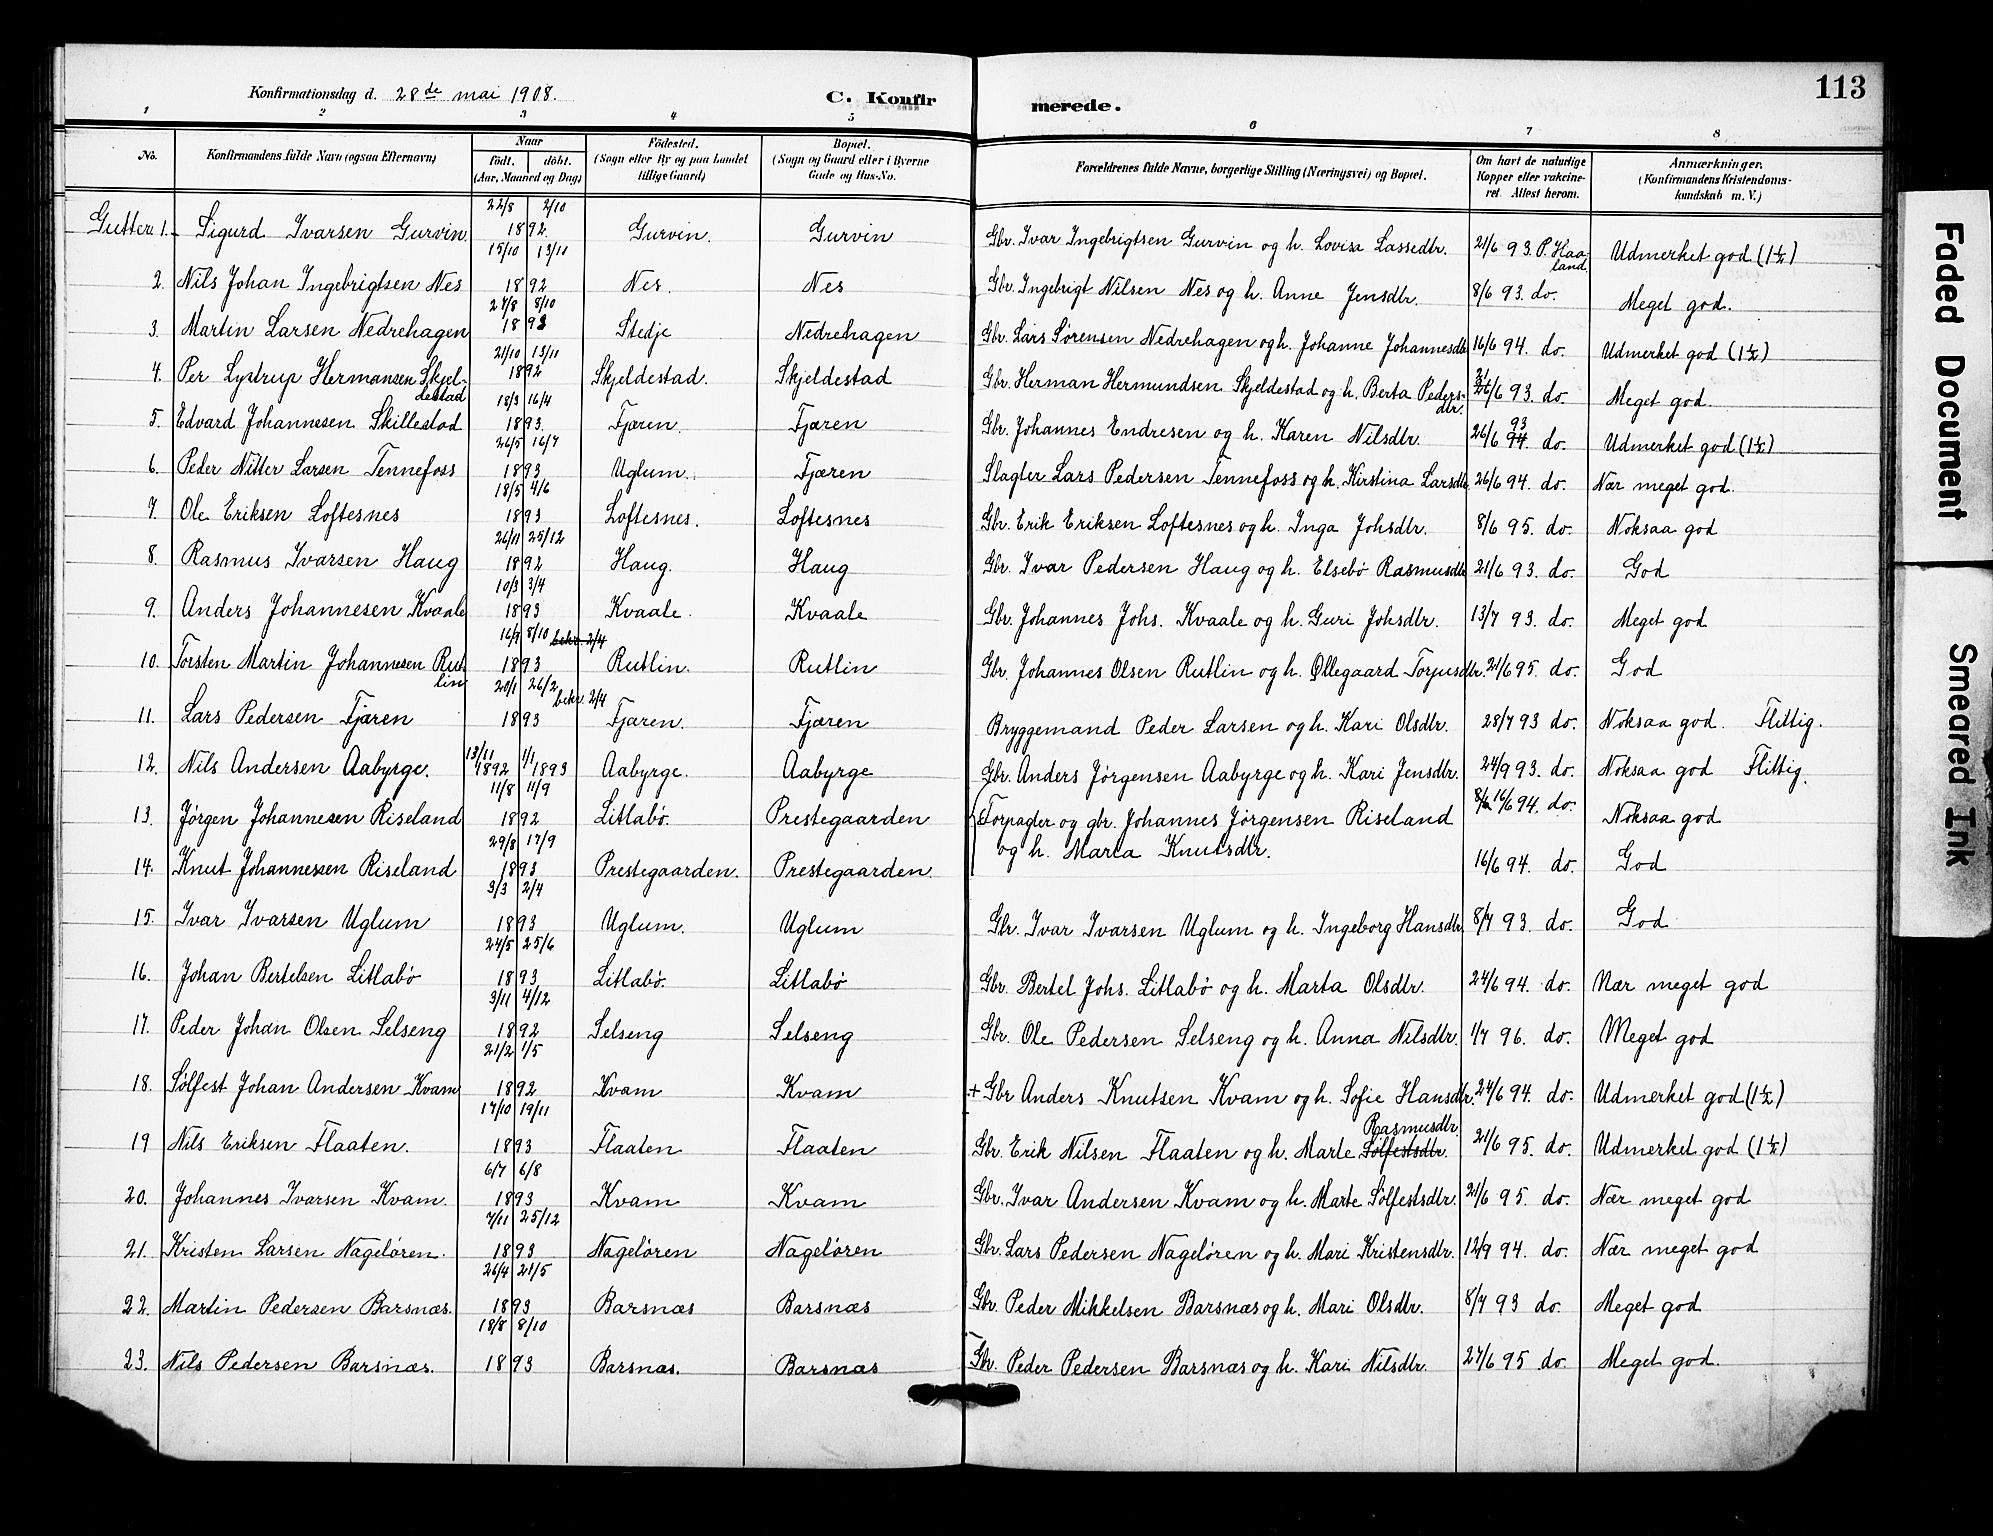 113
Konfirmationsdag d. 28de mai 1908.
C. Konfirmerede.
1 2 3 4 5 6 7 8
No. Konfirmandens fulde Navn (ogsaa Efternavn) Naar født. døbt. (Aar, Maaned og Dag) Födested. (Sogn eller By og paa Landet tillige Gaard) Bopæl. (Sogn og Gaard eller i Byerne Gade og Hus-No. Forældrenes fulde Navne, borgerlige Stilling (Næringsvei) og Bopæl. Om havt de naturlige Kopper eller vakcineret. Attest herom. Anmærkninger. (Konfirmandens Kristendomskundskab m. V.)
Gutter 1. Sigurd Ivarsen Gurvin 22/8 2/10 1892 Gurvin. Gurvin Gbr. Ivar Ingebrigtsen Gurvin og h. Lovisa Lassedtr. 21/6 93. P. Haaland. Udmerket god (1½)
2. Nils Johan Ingebrigtsen Nes 15/10 13/11 1892 Nes. Nes Gbr. Ingebrigt Nilsen Nes og h. Anne Jensdtr. 8/6 93. do. Meget god.
3. Martin Larsen Nedrehagen 27/8 8/10 1892 Stedje Nedrehagen Gbr. Lars Sørensen Nedrehagen og h. Johanne Johannesdtr 16/6 94. do. Udmerket god (1½)
4. Per Lystrup Hermansen Skjeldestad 21/10 13/11 1892 Skjeldestad. Skjeldestad Gbr. Herman Hermundsen Skjeldestad og h. Berta Pedersdtr. 21/6 93. do. Meget god.
5. Edvard Johannesen Skillestad 18/3 16/4 1893. Fjæren. Fjæren Gbr. Johannes Endresen og h. Karen Nilsdtr. 26/6 94 93 do. Udmerket god (1½)
6. Peder Nitter Larsen Tennefoss 26/5 16/7 1893 Uglum. Fjæren Slagter Lars Pedersen Tennefoss og h. Kirstina Larsdtr. 26/6 94. do. Nær meget god.
7. Ole Eriksen Loftesnes 18/5 4/6 1893 Loftesnes. Loftesnes Gbr. Erik Eriksen Loftesnes og h. Inga Johsdtr. 8/6 95. do. Noksaa god
8. Rasmus Ivarsen Haug 26/11 25/12 1892 Haug. Haug Gbr. Ivar Pedersen Haug og h. Elsebø Rasmusdtr 21/6 93. do. God
9. Anders Johannesen Kvaale 10/3 3/4 1893 Kvaale. Kvaale Gbr. Johannes Johs. Kvaale og h. Guri Johsdtr. 13/7 93. do. Meget god
10. Torsten Martin Johannesen Rutlin 16/9 8/10 bekr. 2/4 1893 Rutlin. Rutlin Gbr. Johannes Olsen Rutlin og h. Øllegaard Torjusdtr. 21/6 95. do. God
11. Lars Pedersen Fjæren 20/1 26/2 bekr. 2/4 1893 Fjæren. Fjæren Bryggemand Peder Larsen og h. Kari Olsdtr. 28/7 93 do. Noksaa god. Flittig.
12. Nils Andersen Aabyrge. 13/11 1892 1/1 1893 Aabyrge. Aabyrge Gbr. Anders Jørgensen Aabyrge og h. Kari Jensdtr. 24/9 93. do. Noksaa god Flittig.
13. Jørgen Johannesen Riseland 11/8 11/9 1892 Litlabø. Prestegaarden Forpagter og gbr. Johannes Jørgensen Riseland 16/6 94. do. Noksaa god
og h. Marta Knutsdtr.
14. Knut Johannessen Riseland 29/8 17/9 1893 Prestegaarden. Prestegaarden. 16/6 94. do. God
15. Ivar Ivarsen Uglum 3/3 2/4 1893 Uglum. Uglum Gbr. Ivar Ivarsen Uglum og h. Ingeborg Hansdtr. 8/7 93. do. God
16. Johan Bertelsen Litlabø 24/5 25/6 1893 Litlabø. Litlabø Gbr. Bertel Johs. Litlabø og h. Marta Olsdtr. 24/6 94. do. Nær meget god
17. Peder Johan Olsen Selseng 3/11 4/12 1892 Selseng Selseng Gbr. Ole Pedersen Selseng og h. Anna Nilsdtr. 1/7 96. do. Meget god
18. Sølfest Johan Andersen Kvam 21/2 1/5 1892 Kvam Kvam + Gbr Anders Knutsen Kvam og h. Sofie Hansdtr. 24/6 94. do. Udmerket god (1½)
19 Nils Eriksen Flaaten. 17/10 19/11 1893 Flaaten Flaaten Gbr. Erik Nilsen Flaaten og h. Marte Sølfestsdtr. Rasmusdtr. 21/6 95. do. Udmerket god (1½)
20. Johannes Ivarsen Kvam. 6/7 6/8 1893 Kvam Kvam Gbr. Ivar Andersen Kvam og h. Marte Sølfestsdtr. 21/6 95. do. Nær meget god
21. Kristen Larsen Nageløren. 7/11 25/12 1893 Nageløren Nageløren Gbr. Lars Pedersen Nageløren og h. Mari Kristensdtr. 12/9 94. do. Nær meget god
22. Martin Pedersen Barsnæs. 26/4 21/5 1893 Barsnæs Barsnæs Gbr. Peder Mikkelsen Barsnæs og h. Mari Olsdtr. 8/7 93 do. Meget god
23. Nils Pedersen Barsnæs. 18/8 8/10 1893 Barsnæs. Barsnæs Gbr. Peder Pedersen Barsnæs og h. Kari Nilsdtr. 27/6 95 do. Meget god.
Faded Document
Smeared Ink